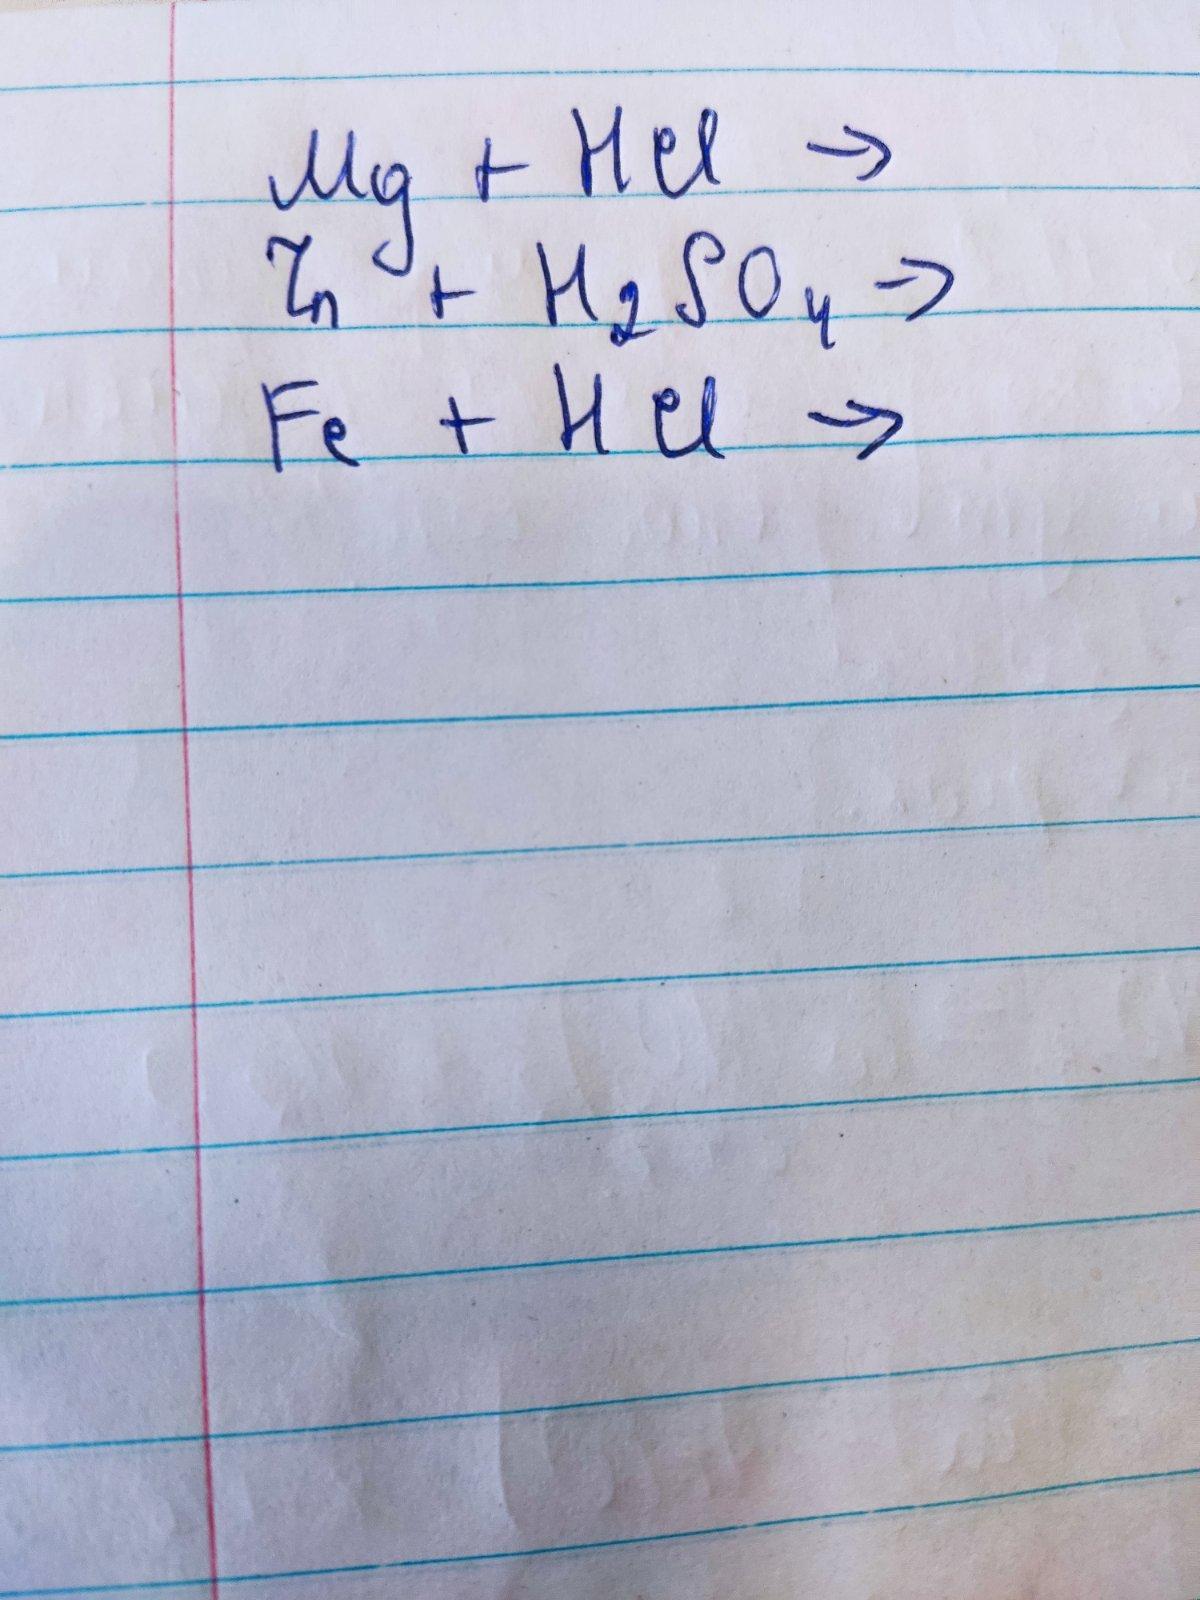 Mg + HCl →
Zn + H₂SO₄ →
Fe + HCl →